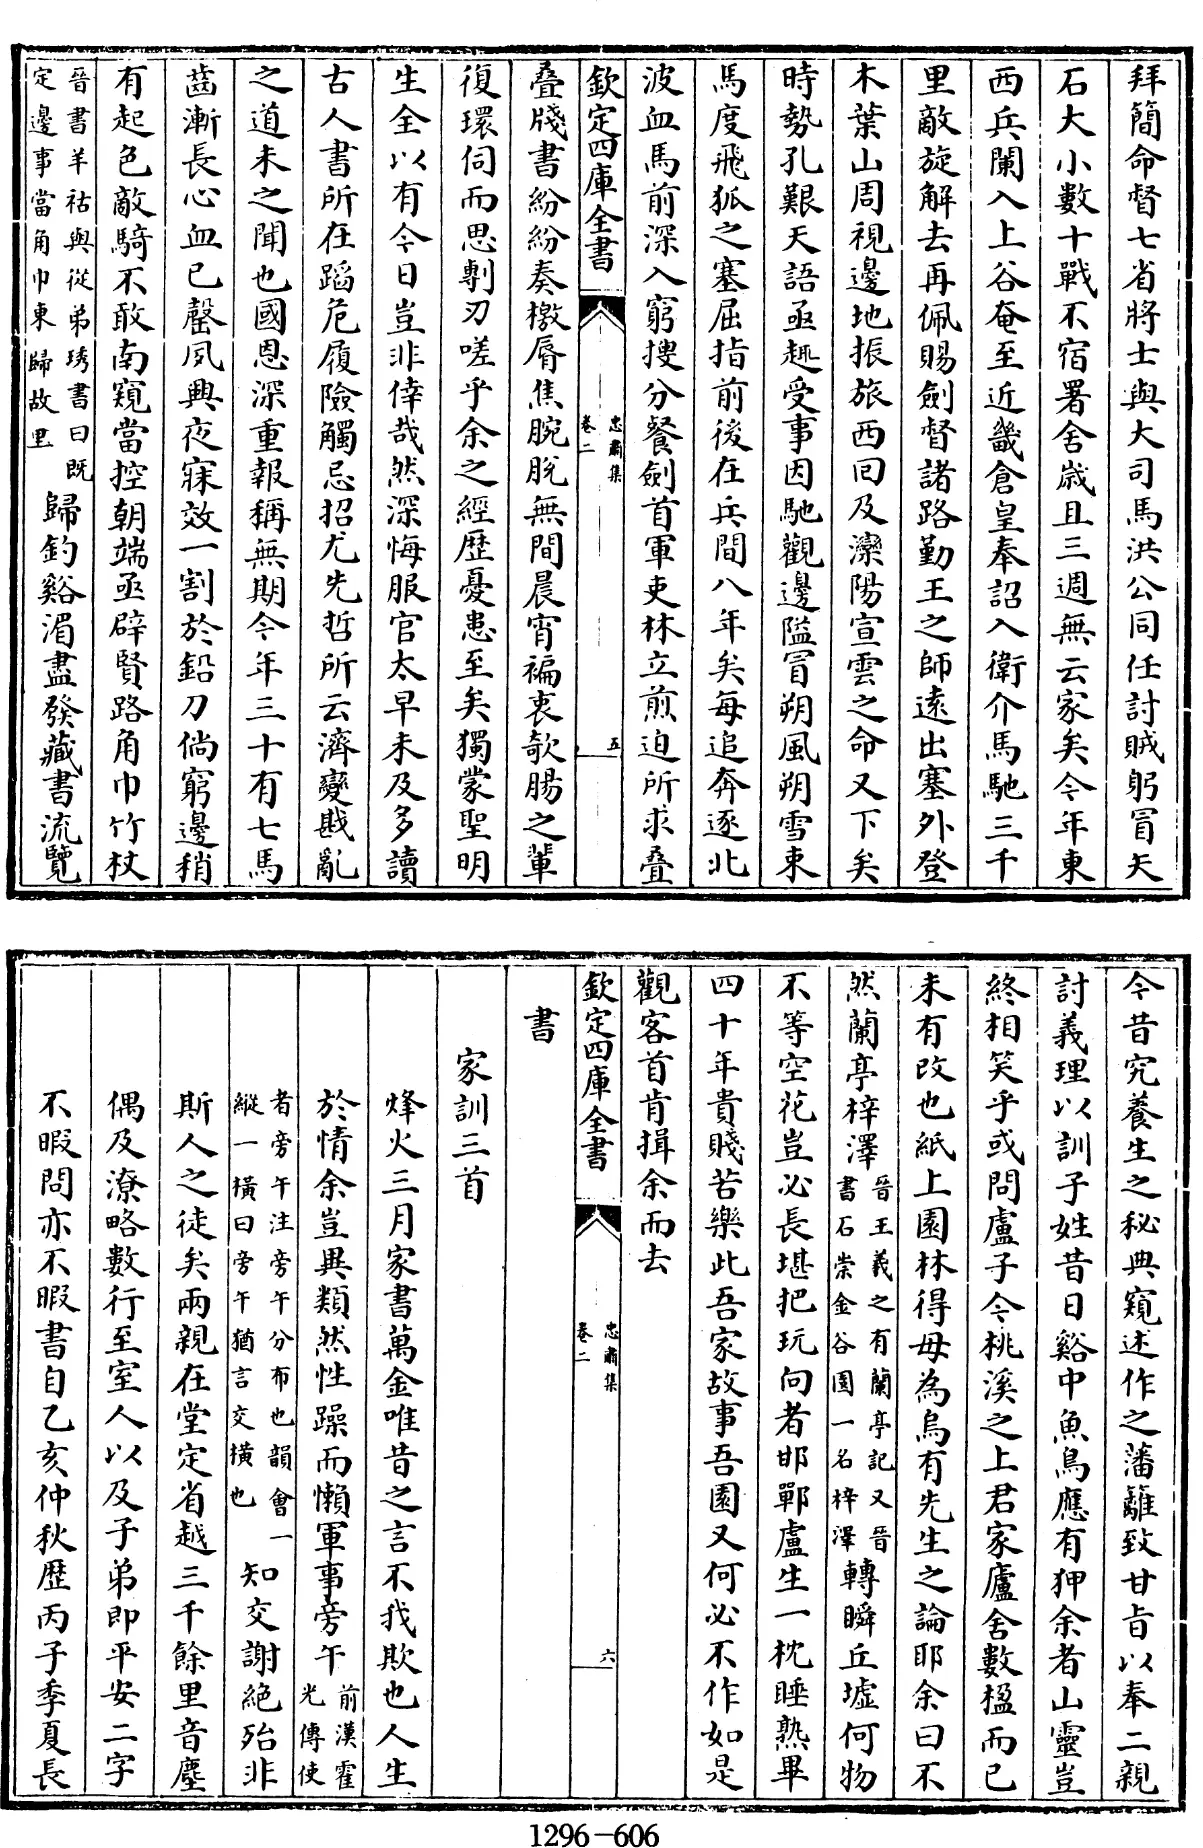 拜簡命督七省將士與大司馬洪公同任討賊躬冒矢
石大小數十戰不宿署舍歲且三週無云家矣今年東
西兵闌入上谷奄至近畿倉皇奉詔入衛介馬馳三千
里敵旋解去再佩賜劍督諸路勤王之師遠出塞外登
木葉山周視邊地振旅西囘及灤陽宣雲之命又下矣
時勢孔艱天語亟趣受事因馳觀邊隘冒朔風朔雪束
馬度飛狐之塞屈指前後在兵間八年矣每追奔逐北
波血馬前深入窮搜分餐劍首軍吏林立煎迫所求叠
欽定四庫全書
忠肅集
卷二
五
叠牋書紛紛奏檄脣焦腕脫無間晨宵褊衷欹腸之輩
復環伺而思剸刃嗟乎余之經歴憂患至矣獨蒙聖明
生全以有今日豈非倖哉然深悔服官太早未及多讀
古人書所在蹈危履險觸忌招尤先哲所云濟變戡亂
之道未之聞也國恩深重報稱無期今年三十有七馬
齒漸長心血已罄夙興夜寐效一割於鉛刀倘窮邊稍
有起色敵騎不敢南窺當控朝端亟辟賢路角巾竹杖
晉書羊祜與從弟琇書曰既
定邊事當角巾東歸故里
歸釣谿湄盡發藏書流覽
今昔究養生之秘典窺述作之藩籬致甘旨以奉二親
討義理以訓子姓昔日谿中魚鳥應有狎余者山靈豈
終相笑乎或問盧子今桃溪之上君家廬舍數楹而已
未有改也紙上園林得毋為烏有先生之論耶余曰不
然蘭亭梓澤
晉王羲之有蘭亭記又晉
書石崇金谷園一名梓澤
轉瞬丘墟何物
不等空花豈必長堪把玩向者邯鄲盧生一枕睡熟畢
四十年貴賤苦樂此吾家故事吾園又何必不作如是
觀客首肯揖余而去
欽定四庫全書
忠肅集
卷二
六
書
家訓三首
烽火三月家書萬金唯昔之言不我欺也人生
於情余豈異類然性躁而懶軍事旁午
前漢霍
光傳使
者旁午注旁午分布也韻會一
縱一橫曰旁午猶言交橫也
知交謝絶殆非
斯人之徒矣兩親在堂定省越三千餘里音塵
偶及潦略數行至室人以及子弟即平安二字
不暇問亦不暇書自乙亥仲秋歴丙子季夏長
1296-606